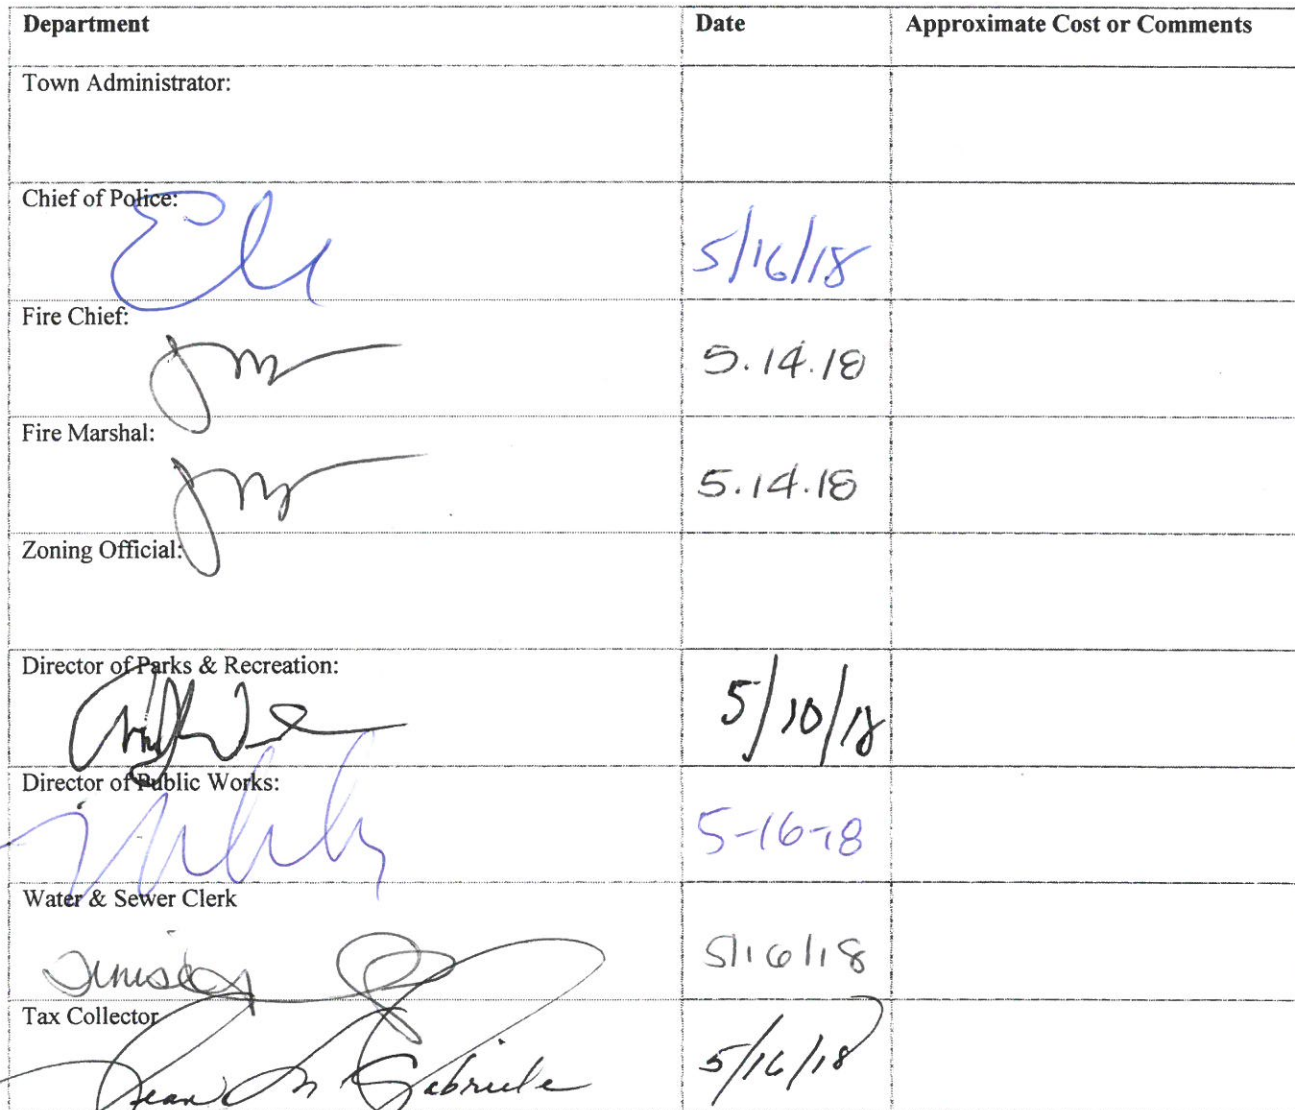 Department Date Approximate Cost or Comments
Town Administrator:
Chief of Police:
5/16/18
Fire Chief:
5.14.18
Fire Marshal:
5.14.18
Zoning Official:
Director of Parks & Recreation:
5/10/18
Director of Public Works:
5-16-18
Water & Sewer Clerk
5/16/18
Tax Collector
Jean M Gabriele 5/16/18